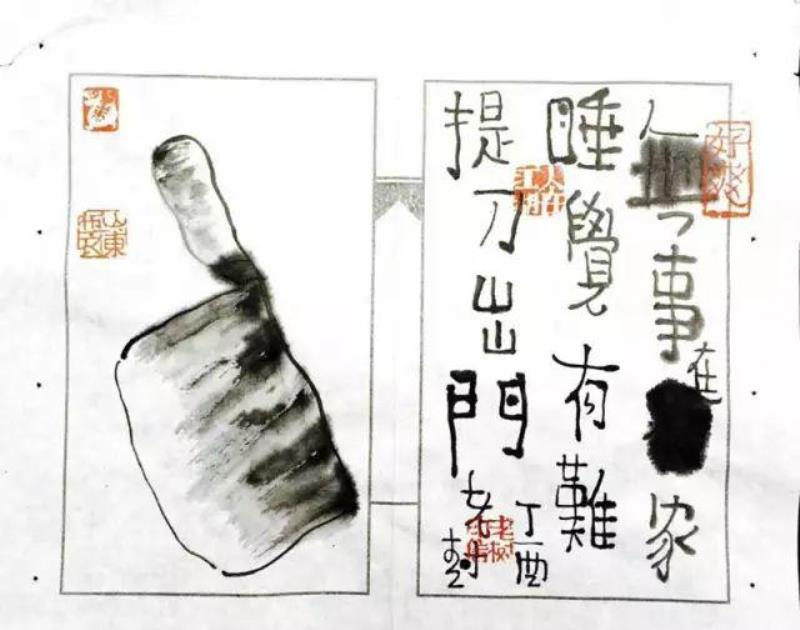 無事在家
睡覺有難
提刀出門
丁酉
老树